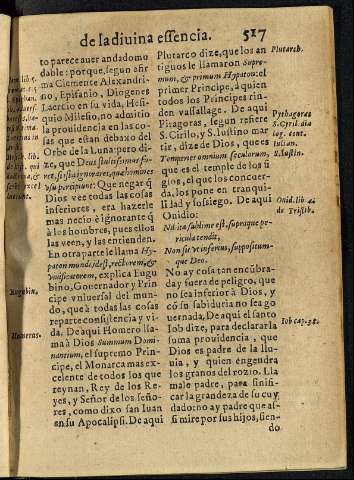 de la diuina essencia. 517
to parece auer andado mo
dable: porque, segun afir
ma Clemente Alexandri-
no, Epifanio, Diogenes
Laercio en su vida, Hesi-
quio Milesio, no admitio
la prouidencia en las co-
sas que estan debaxo del
Orbe de la Luna: pero di-
ze, que Deus sublimiores fu-
que
ros percipiunt: Que negar q̃
Dios vee todas las cosas
inferiores, era hazerle
mas necio è ignorante q̃
à los hombres, pues ellos
las veen, y las entienden.
En otra parte le llama Hy-
paton mundi, id est, rectorem, &
explica Eugu
bino, Gouernador y Prin
cipe vniuersal del mun-
do, que à todas las cosas
reparte consistencia y vi-
da. De aqui Homero lla-
ma à Dios Summum Domi-
nantium, el supremo Prin-
cipe, el Monarca mas ex-
celente de todos los que
reynan, Rey de los Re-
yes, y Señor de los Seño-
res, como dixo san Iuan
en su Apocalipsi. De aqui
Eugubin.
Homerus.
Plutarco dize, que los an
tiguos le llamaron Supre-
mum, & primum Hypaton: el
primer Principe, à quien
todos los Principes rin-
den vassallage. De aqui
Pitagoras, segun refiere
S. Cirilo, y S. Iustino mar
tir, dize de Dios, que es
Temperies omnium seculorum,
que es el temple de los si
glos, el que los concuer-
da, los pone en tranqui-
lidad y sossiego. De aqui
Onidio:
Nil ita sublime est, supraque pe-
ricula tendit,
Non sit vt inferius, suppositum-
que Deo.
No ay cosa tan encũbra-
da y fuera de peligro, que
no sea inferior à Dios, y
cõ su sabiduria no sea go
uernada. De aqui el santo
Iob dize, para declararla
suma prouidencia, que
Dios es padre de la llu
uia, y quien engendra
los granos del rozio. Lla
male padre, para sinifi-
car la grandeza de su cuy
dado: no ay padre que as-
si mire por sus hijos, sien-
do
Plutarch.
Pythagoras
S. Cyril. dia
log. cont.
Iulian.
S. Iustin.
Onid. lib. 4.
de Tristib.
Iob cap. 38.